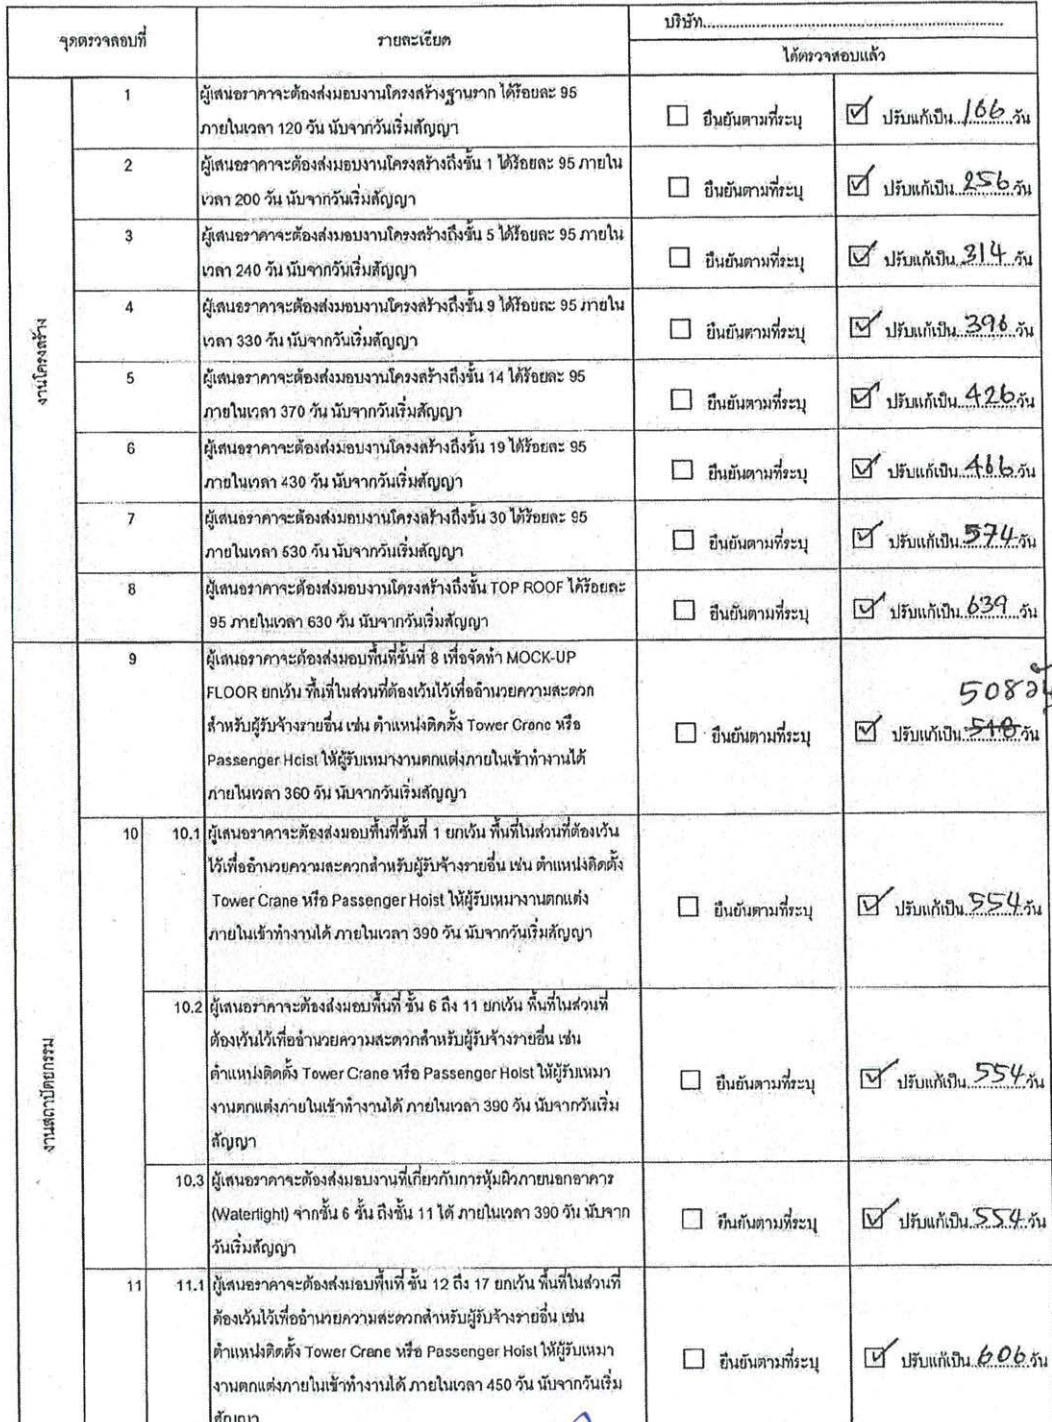 จุดตรวจสอบที่
รายละเอียด
บริษัท
ได้ตรวจสอบแล้ว
งานโครงสร้าง
1
ผู้เสนอราคาจะต้องส่งมอบงานโครงสร้างฐานราก ได้ร้อยละ 95
ภายในเวลา 120 วัน นับจากวันเริ่มสัญญา
ยืนยันตามที่ระบุ
ปรับแก้เป็น 166 วัน
2
ผู้เสนอราคาจะต้องส่งมอบงานโครงสร้างถึงชั้น 1 ได้ร้อยละ 95 ภายใน
เวลา 200 วัน นับจากวันเริ่มสัญญา
ยืนยันตามที่ระบุ
ปรับแก้เป็น 256 วัน
3
ผู้เสนอราคาจะต้องส่งมอบงานโครงสร้างถึงชั้น 5 ได้ร้อยละ 95 ภายใน
เวลา 240 วัน นับจากวันเริ่มสัญญา
ยืนยันตามที่ระบุ
ปรับแก้เป็น 314 วัน
4
ผู้เสนอราคาจะต้องส่งมอบงานโครงสร้างถึงชั้น 9 ได้ร้อยละ 95 ภายใน
เวลา 330 วัน นับจากวันเริ่มสัญญา
ยืนยันตามที่ระบุ
ปรับแก้เป็น 396 วัน
5
ผู้เสนอราคาจะต้องส่งมอบงานโครงสร้างถึงชั้น 14 ได้ร้อยละ 95
ภายในเวลา 370 วัน นับจากวันเริ่มสัญญา
ยืนยันตามที่ระบุ
ปรับแก้เป็น 426 วัน
6
ผู้เสนอราคาจะต้องส่งมอบงานโครงสร้างถึงชั้น 19 ได้ร้อยละ 95
ภายในเวลา 430 วัน นับจากวันเริ่มสัญญา
ยืนยันตามที่ระบุ
ปรับแก้เป็น 466 วัน
7
ผู้เสนอราคาจะต้องส่งมอบงานโครงสร้างถึงชั้น 30 ได้ร้อยละ 95
ภายในเวลา 530 วัน นับจากวันเริ่มสัญญา
ยืนยันตามที่ระบุ
ปรับแก้เป็น 574 วัน
8
ผู้เสนอราคาจะต้องส่งมอบงานโครงสร้างถึงชั้น TOP ROOF ได้ร้อยละ
95 ภายในเวลา 630 วัน นับจากวันเริ่มสัญญา
ยืนยันตามที่ระบุ
ปรับแก้เป็น 639 วัน
งานสถาปัตยกรรม
9
ผู้เสนอราคาจะต้องส่งมอบพื้นที่ชั้นที่ 8 เพื่อจัดทำ MOCK-UP
FLOOR ยกเว้น พื้นที่ในส่วนที่ต้องเว้นไว้เพื่ออำนวยความสะดวก
สำหรับผู้รับจ้างรายอื่น เช่น ตำแหน่งติดตั้ง Tower Crane หรือ
Passenger Hoist ให้ผู้รับเหมางานตกแต่งภายในเข้าทำงานได้
ภายในเวลา 360 วัน นับจากวันเริ่มสัญญา
ยืนยันตามที่ระบุ
508 วัน
ปรับแก้เป็น 518 วัน
10
10.1 ผู้เสนอราคาจะต้องส่งมอบพื้นที่ชั้นที่ 1 ยกเว้น พื้นที่ในส่วนที่ต้องเว้น
ไว้เพื่ออำนวยความสะดวกสำหรับผู้รับจ้างรายอื่น เช่น ตำแหน่งติดตั้ง
Tower Crane หรือ Passenger Hoist ให้ผู้รับเหมางานตกแต่ง
ภายในเข้าทำงานได้ ภายในเวลา 390 วัน นับจากวันเริ่มสัญญา
ยืนยันตามที่ระบุ
ปรับแก้เป็น 554 วัน
10.2 ผู้เสนอราคาจะต้องส่งมอบพื้นที่ ชั้น 6 ถึง 11 ยกเว้น พื้นที่ในส่วนที่
ต้องเว้นไว้เพื่ออำนวยความสะดวกสำหรับผู้รับจ้างรายอื่น เช่น
ตำแหน่งติดตั้ง Tower Crane หรือ Passenger Hoist ให้ผู้รับเหมา
งานตกแต่งภายในเข้าทำงานได้ ภายในเวลา 390 วัน นับจากวันเริ่ม
สัญญา
ยืนยันตามที่ระบุ
ปรับแก้เป็น 554 วัน
10.3 ผู้เสนอราคาจะต้องส่งมอบงานที่เกี่ยวกับการหุ้มผิวภายนอกอาคาร
(Watertight) จากชั้น 6 ชั้น ถึงชั้น 11 ได้ ภายในเวลา 390 วัน นับจาก
วันเริ่มสัญญา
ยืนยันตามที่ระบุ
ปรับแก้เป็น 554 วัน
11
11.1 ผู้เสนอราคาจะต้องส่งมอบพื้นที่ ชั้น 12 ถึง 17 ยกเว้น พื้นที่ในส่วนที่
ต้องเว้นไว้เพื่ออำนวยความสะดวกสำหรับผู้รับจ้างรายอื่น เช่น
ตำแหน่งติดตั้ง Tower Crane หรือ Passenger Hoist ให้ผู้รับเหมา
งานตกแต่งภายในเข้าทำงานได้ ภายในเวลา 450 วัน นับจากวันเริ่ม
สัญญา
ยืนยันตามที่ระบุ
ปรับแก้เป็น 606 วัน